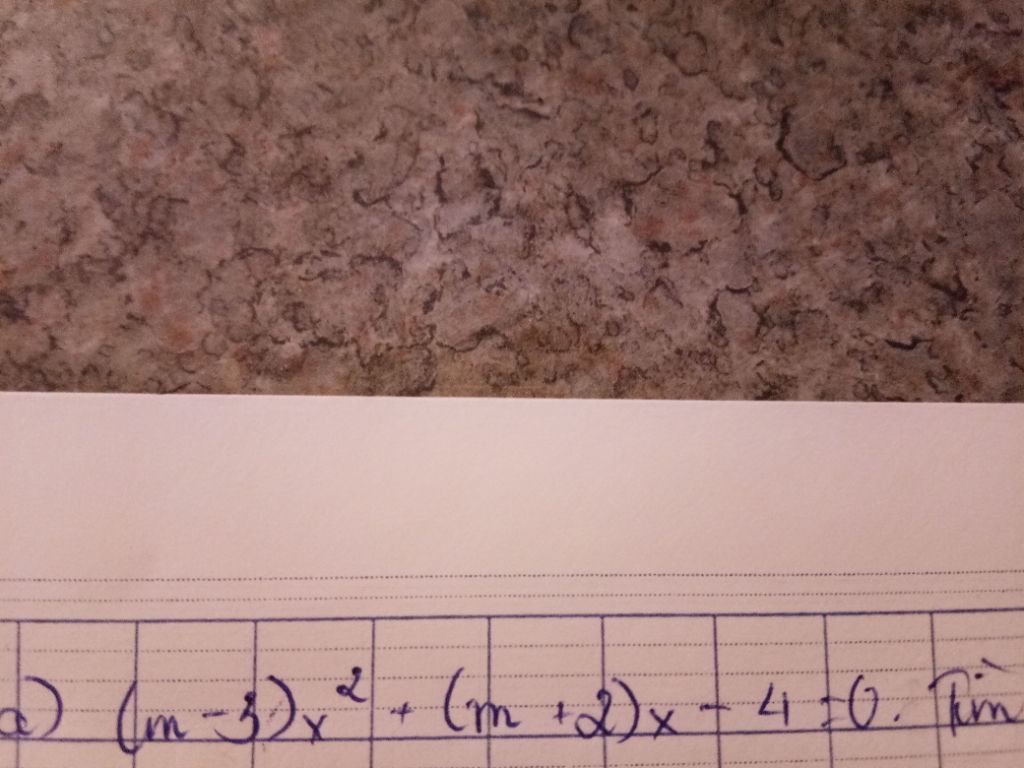 a) (m-3)x² + (m+2)x - 4 = 0. Tìm